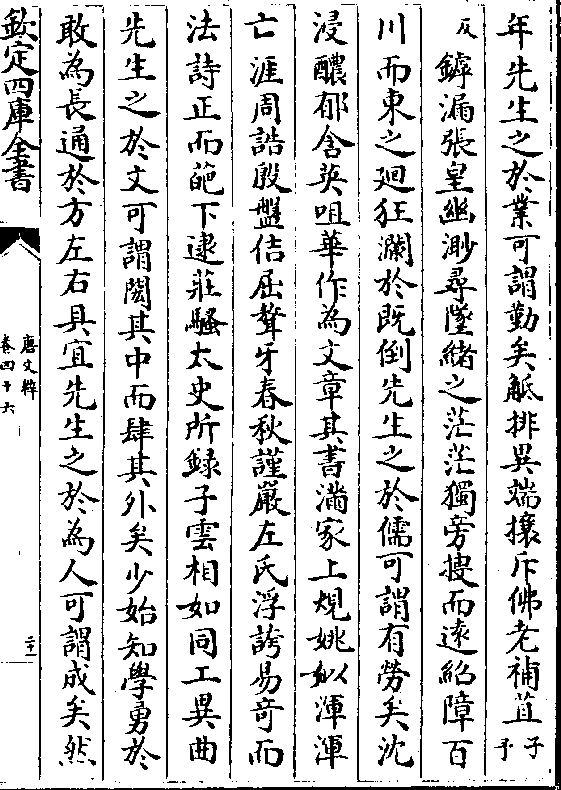 年先生之於業可謂勤矣觝排異端攘斥佛老補苴子予
反鏬漏張皇幽渺尋墜緒之茫茫獨旁搜而遠紹障百
川而東之廻狂瀾於既倒先生之於儒可謂有勞矣沈
浸醲郁含英咀華作為文章其書滿家上規姚姒渾渾
亡涯周誥殷盤佶屈聱牙春秋謹嚴左氏浮誇易竒而
法詩正而葩下逮莊騷太史所録子雲相如同工異曲
先生之於文可謂閎其中而肆其外矣少始知學勇於
敢為長通於方左右具宜先生之於為人可謂成矣然
欽定四庫全書
唐文粹
卷四十六
二十